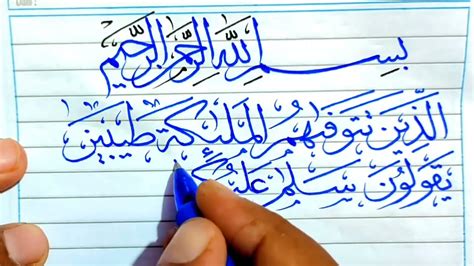 بِسْمِ اللَّهِ الرَّحْمٰنِ الرَّحِيمِ
الَّذِينَ تتوفىٰهم الملٰئكة طيبين
يقولون سلٰم عليك